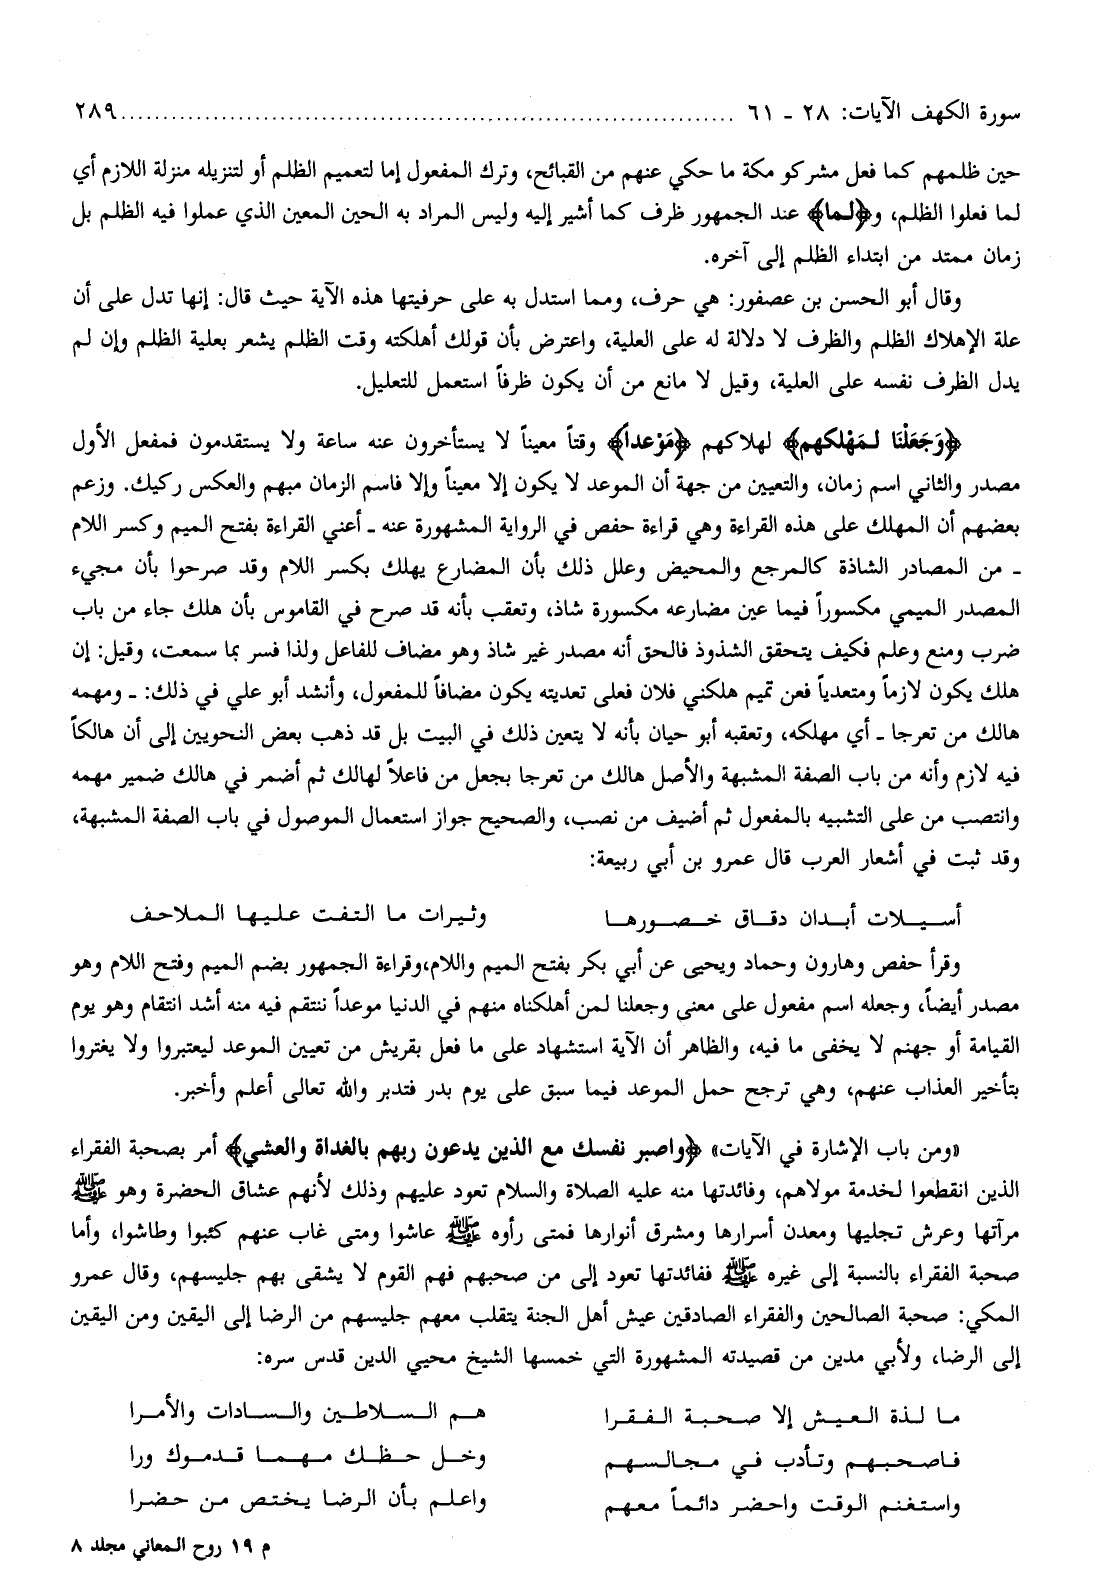 سورة الكهف الآيات: ٢٨ ـ ٦١ ........................................................................... ٢٨٩
حين ظلمهم كما فعل مشركو مكة ما حكي عنهم من القبائح، وترك المفعول إما لتعميم الظلم أو لتنزيله منزلة اللازم أي
لما فعلوا الظلم، و﴿لما﴾ عند الجمهور ظرف كما أشير إليه وليس المراد به الحين المعين الذي عملوا فيه الظلم بل
زمان ممتد من ابتداء الظلم إلى آخره.
وقال أبو الحسن بن عصفور: هي حرف، ومما استدل به على حرفيتها هذه الآية حيث قال: إنها تدل على أن
علة الإهلاك الظلم والظرف لا دلالة له على العلية، واعترض بأن قولك أهلكته وقت الظلم يشعر بعلية الظلم وإن لم
يدل الظرف نفسه على العلية، وقيل لا مانع من أن يكون ظرفاً استعمل للتعليل.
﴿وَجَعَلْنَا لـمَهْلكهم﴾ لهلاكهم ﴿مَوْعداً﴾ وقتاً معيناً لا يستأخرون عنه ساعة ولا يستقدمون فمفعل الأول
مصدر والثاني اسم زمان، والتعيين من جهة أن الموعد لا يكون إلا معيناً وإلا فاسم الزمان مبهم والعكس ركيك. وزعم
بعضهم أن المهلك على هذه القراءة وهي قراءة حفص في الرواية المشهورة عنه ـ أعني القراءة بفتح الميم وكسر اللام
ـ من المصادر الشاذة كالمرجع والمحيض وعلل ذلك بأن المضارع يهلك بكسر اللام وقد صرحوا بأن مجيء
المصدر الميمي مكسوراً فيما عين مضارعه مكسورة شاذ، وتعقب بأنه قد صرح في القاموس بأن هلك جاء من باب
ضرب ومنع وعلم فكيف يتحقق الشذوذ فالحق أنه مصدر غير شاذ وهو مضاف للفاعل ولذا فسر بما سمعت، وقيل: إن
هلك يكون لازماً ومتعدياً فعن تميم هلكني فلان فعلى تعديته يكون مضافاً للمفعول، وأنشد أبو علي في ذلك: ـ ومهمه
هالك من تعرجا ـ أي مهلكه، وتعقبه أبو حيان بأنه لا يتعين ذلك في البيت بل قد ذهب بعض النحويين إلى أن هالكاً
فيه لازم وأنه من باب الصفة المشبهة والأصل هالك من تعرجا بجعل من فاعلاً لهالك ثم أضمر في هالك ضمير مهمه
وانتصب من على التشبيه بالمفعول ثم أضيف من نصب، والصحيح جواز استعمال الموصول في باب الصفة المشبهة،
وقد ثبت في أشعار العرب قال عمرو بن أبي ربيعة:
أسيلات أبدان دقاق خصورها وثيرات ما التفت عليها الملاحف
وقرأ حفص وهارون وحماد ويحيى عن أبي بكر بفتح الميم واللام،وقراءة الجمهور بضم الميم وفتح اللام وهو
مصدر أيضاً، وجعله اسم مفعول على معنى وجعلنا لمن أهلكناه منهم في الدنيا موعداً ننتقم فيه منه أشد انتقام وهو يوم
القيامة أو جهنم لا يخفى ما فيه، والظاهر أن الآية استشهاد على ما فعل بقريش من تعيين الموعد ليعتبروا ولا يغتروا
بتأخير العذاب عنهم، وهي ترجح حمل الموعد فيما سبق على يوم بدر فتدبر والله تعالى أعلم وأخبر.
«ومن باب الإشارة في الآيات» ﴿واصبر نفسك مع الذين يدعون ربهم بالغداة والعشي﴾ أمر بصحبة الفقراء
الذين انقطعوا لخدمة مولاهم، وفائدتها منه عليه الصلاة والسلام تعود عليهم وذلك لأنهم عشاق الحضرة وهو ﷺ
مرآتها وعرش تجليها ومعدن أسرارها ومشرق أنوارها فمتى رأوه ﷺ عاشوا ومتى غاب عنهم كئبوا وطاشوا، وأما
صحبة الفقراء بالنسبة إلى غيره ﷺ ففائدتها تعود إلى من صحبهم فهم القوم لا يشقى بهم جليسهم، وقال عمرو
المكي: صحبة الصالحين والفقراء الصادقين عيش أهل الجنة يتقلب معهم جليسهم من الرضا إلى اليقين ومن اليقين
إلى الرضا، ولأبي مدين من قصيدته المشهورة التي خمسها الشيخ محيي الدين قدس سره:
ما لذة العيش إلا صحبة الفقرا هم السلاطين والسادات والأمرا
فاصحبهم وتأدب في مجالسهم وخل حظك مهما قدموك ورا
واستغنم الوقت واحضر دائماً معهم واعلم بأن الرضا يختص من حضرا
م ١٩ روح المعاني مجلد ٨